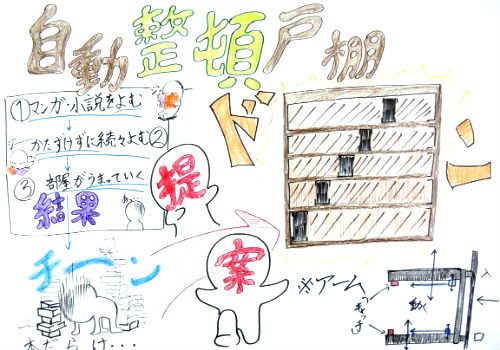 自動整頓戸棚
①マンガ・小説をよむ
かたずけずに続々よむ②
③ 部屋がうまっていく
結果
チーン
本だらけ・・・
提案
ドーン
※アーム
動く